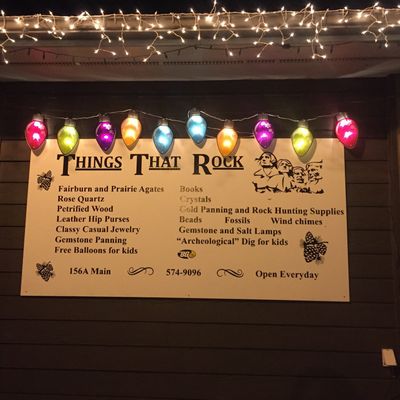 THINGS THAT ROCK
Fairburn and Prairie Agates
Rose Quartz
Petrified Wood
Leather Hip Purses
Classy Casual Jewelry
Gemstone Panning
Free Balloons for kids
Books
Crystals
Gold Panning and Rock Hunting Supplies
Beads Fossils Wind chimes
Gemstone and Salt Lamps
“Archeological” Dig for kids
156A Main 574-9096 Open Everyday